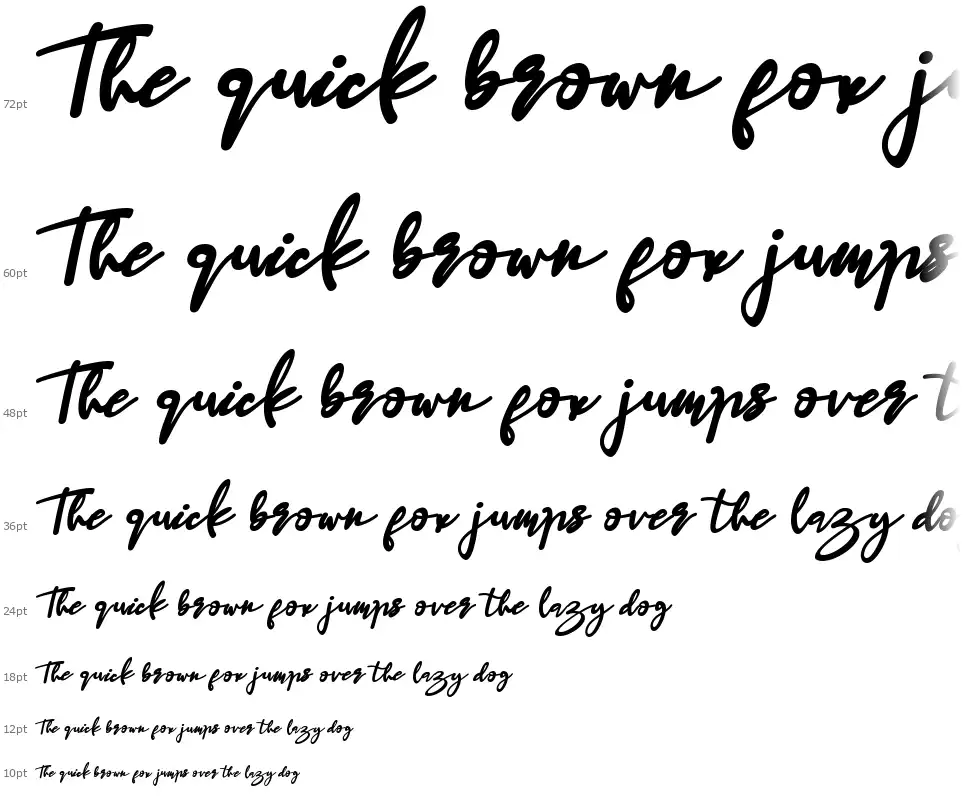 72pt The quick brown fox j
60pt The quick brown fox jumps
48pt The quick brown fox jumps over t
36pt The quick brown fox jumps over the lazy do
24pt The quick brown fox jumps over the lazy dog
18pt The quick brown fox jumps over the lazy dog
12pt The quick brown fox jumps over the lazy dog
10pt The quick brown fox jumps over the lazy dog